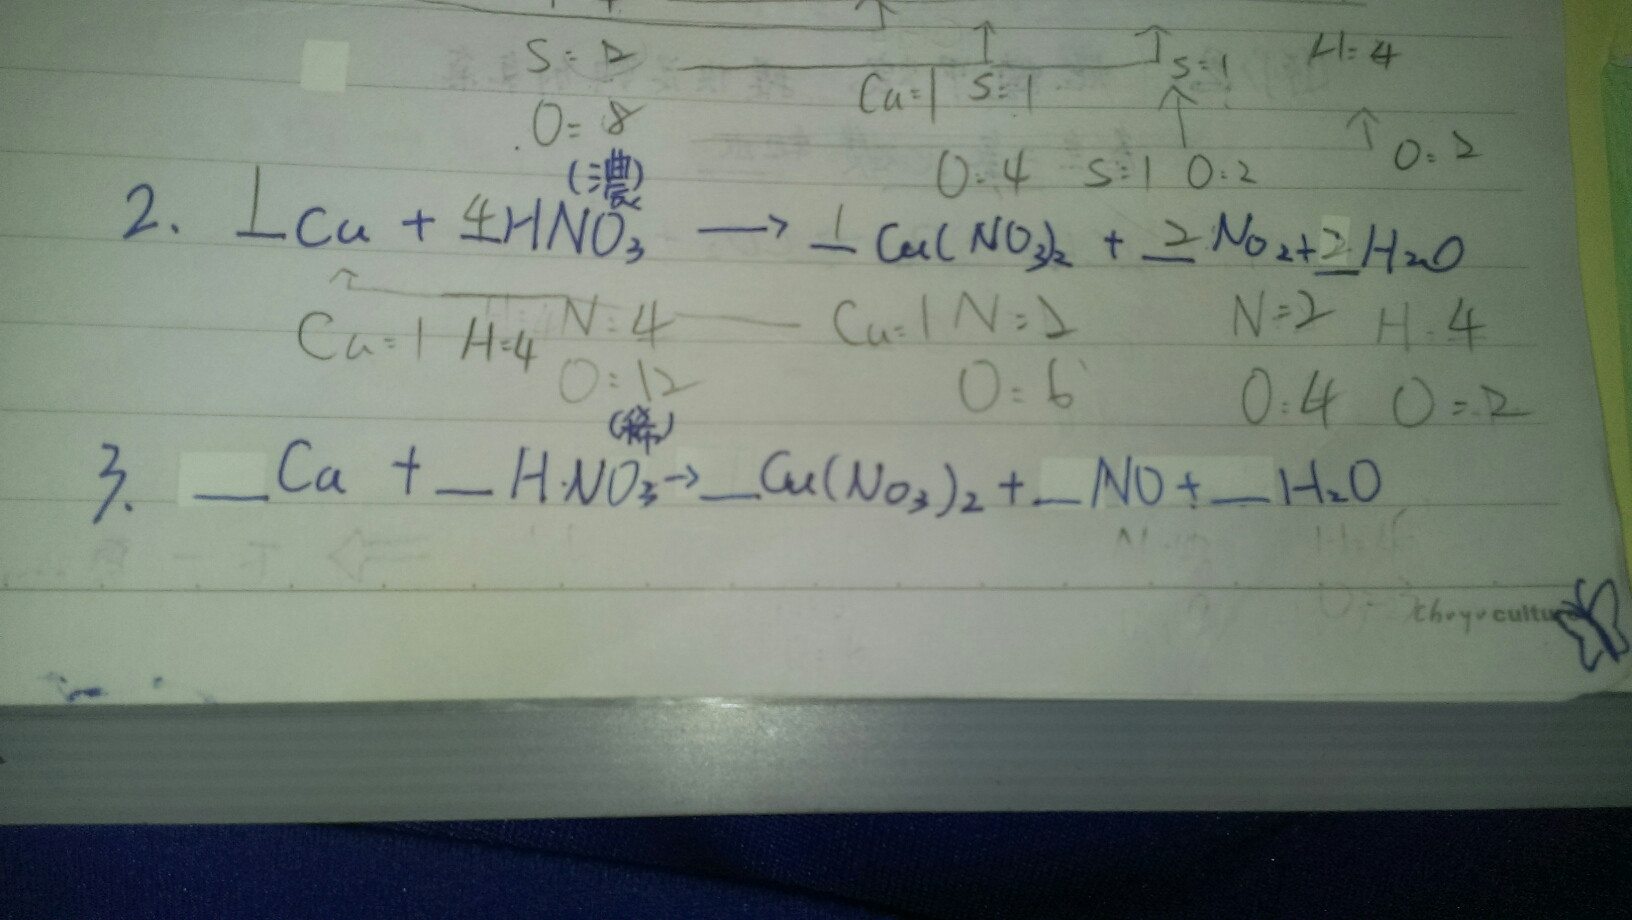 S = 2
H=4
Cu=1 S=1
S=1
O= 8
O=4 S=1 O=2
O=2
(濃)
2. 1 Cu + 4 HNO3 → 1 Cu(NO3)2 + 2 NO2 + 2 H2O
Cu=1 H=4 N=4 Cu=1 N=2 N=2 H=4
O=12 O=6 O=4 O=2
(稀)
3. __ Cu + __ HNO3 → __ Cu(NO3)2 + __ NO + __ H2O